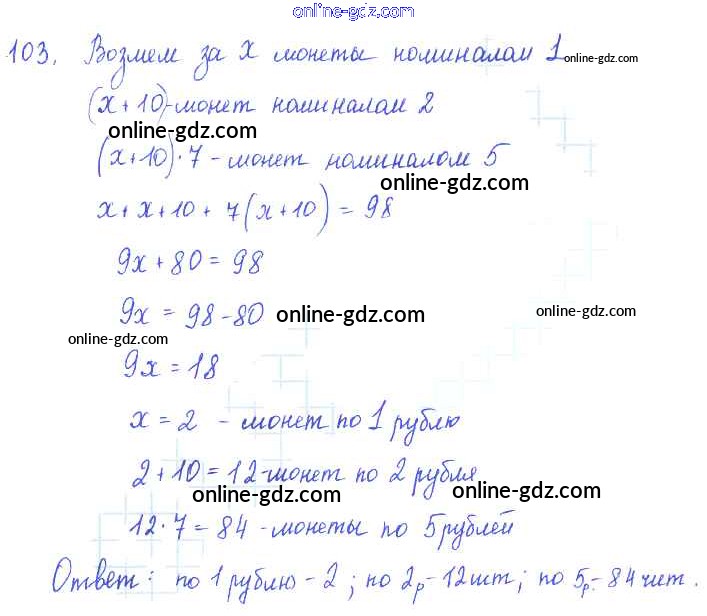 online-gdz.com
103. Возмем за x монеты номиналам 1 online-gdz.com
(x+10)-монет номиналам 2
online-gdz.com
(x+10)·7 - монет номиналом 5
online-gdz.com
x+x+10+7(x+10)=98
9x+80=98 online-gdz.com
9x=98-80 online-gdz.com
online-gdz.com
9x=18
x=2 - монет по 1 рублю
2+10=12-монет по 2 рубля
online-gdz.com online-gdz.com
12·7=84 - монеты по 5 рублей
Ответ: по 1 рублю - 2; по 2р - 12 шт; по 5р. - 84 шт.
online-gdz.com